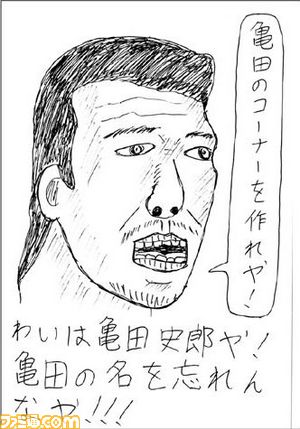 亀田のコーナーを作れや!
わいは亀田史郎や!
亀田の名を忘れん
なや!!!
ファミ通.com